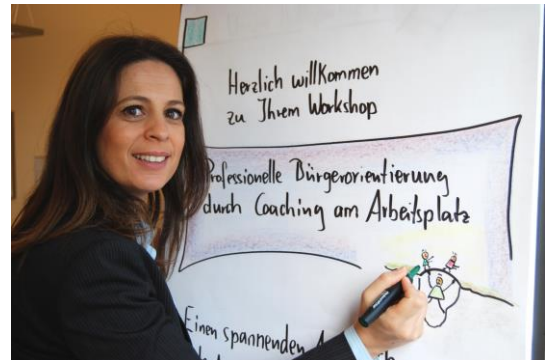 Herzlich willkommen
zu Ihrem Workshop
Professionelle Bürgerorientierung
durch Coaching am Arbeitsplatz
Einen spannenden